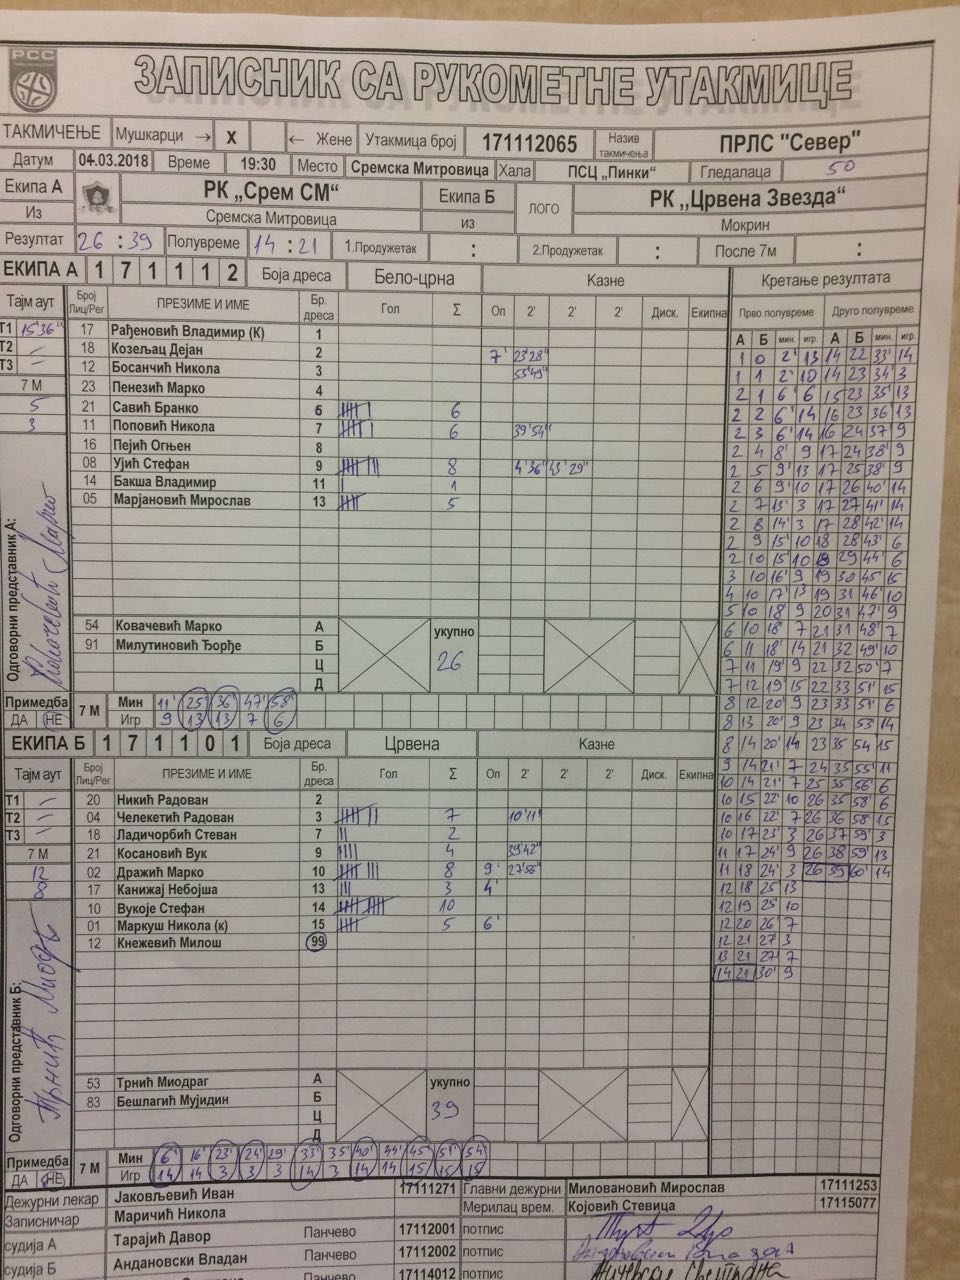 РСС
ЗАПИСНИК СА РУКОМЕТНЕ УТАКМИЦЕ
ТАКМИЧЕЊЕ Мушкарци → X ← Жене Утакмица број 171112065 Назив такмичења ПРЛС "Север"
Датум 04.03.2018 Време 19:30 Место Сремска Митровица Хала ПСЦ „Пинки“ Гледалаца 50
Екипа А РК „Срем СМ“ Екипа Б ЛОГО РК „Црвена Звезда“
Из Сремска Митровица из Мокрин
Резултат 26 : 39 Полувреме 14 : 21 1.Продужетак : 2.Продужетак : После 7м :
ЕКИПА А 1 7 1 1 1 2 Боја дреса Бело-црна Казне Кретање резултата
Тајм аут Број Лиц/Рег ПРЕЗИМЕ И ИМЕ Бр. дреса Гол Σ Оп 2' 2' 2' Диск. Екипна Прво полувреме Друго полувреме
А Б мин. игр. А Б мин. игр.
Т1 15'36" 17 Рађеновић Владимир (К) 1
Т2 – 18 Козељац Дејан 2 7' 23'28"
Т3 – 12 Босанчић Никола 3 53'49"
7 М 23 Пенезић Марко 4
5 21 Савић Бранко 6 6
3 11 Поповић Никола 7 6 39'54"
16 Пејић Огњен 8
08 Ујић Стефан 9 8 4'36" 43'29"
14 Бакша Владимир 11 1
05 Марјановић Мирослав 13 5
Одговорни представник А:
54 Ковачевић Марко А укупно
91 Милутиновић Ђорђе Б 26
Ц
Д
Примедба 7 М Мин 11' 25' 36' 47' 58'
ДА НЕ Игр 9 13 13 7 6
ЕКИПА Б 1 7 1 1 0 1 Боја дреса Црвена Казне
Тајм аут Број Лиц/Рег ПРЕЗИМЕ И ИМЕ Бр. дреса Гол Σ Оп 2' 2' 2' Диск. Екипна
Т1 – 20 Никић Радован 2
Т2 – 04 Челекетић Радован 3 7 10'11"
Т3 – 18 Ладичорбић Стеван 7 2
7 М 21 Косановић Вук 9 4 39'42"
12 02 Дражић Марко 10 8 9' 27'56"
8 17 Канижај Небојша 13 3 4'
10 Вукоје Стефан 14 10
01 Маркуш Никола (к) 15 5 6'
12 Кнежевић Милош 99
Одговорни представник Б:
53 Трнић Миодраг А укупно
83 Бешлагић Мујидин Б 39
Ц
Д
Примедба 7 М Мин 6' 16' 23' 24' 29' 33' 35' 40' 44' 45' 51' 54'
ДА НЕ Игр 14 14 3 3 3 14 3 14 14 15 15 15
1 0 2' 13 14 22 33' 14
1 1 2' 10 14 23 34' 3
2 1 6' 6 15 23 35' 13
2 2 6' 14 16 23 36' 13
2 3 6' 14 16 24 37' 9
2 4 8' 9 17 24 38' 9
2 5 9' 13 17 25 38' 9
2 6 9' 10 17 26 40' 14
2 7 13' 3 17 27 41' 14
2 8 14' 3 17 28 42' 14
2 9 15' 10 18 28 43' 6
2 10 15' 10 19 29 44' 6
3 10 16' 9 19 30 45' 15
4 10 17' 13 19 31 46' 10
5 10 18' 9 20 31 47' 9
6 10 18' 7 21 31 48' 7
6 11 18' 14 21 32 49' 10
7 11 19' 9 22 32 50' 7
7 12 19' 15 22 33 51' 15
8 12 20' 9 23 33 51' 6
8 13 20' 9 23 34 53' 14
8 14 20' 14 23 35 54 15
9 14 21' 7 24 35 55' 11
10 14 21' 7 25 35 56' 6
10 15 22' 10 26 35 58' 6
10 16 22' 7 26 36 58' 15
10 17 23' 3 26 37 59' 3
11 17 24' 9 26 38 59' 13
11 18 24' 3 26 39 60' 14
12 18 25' 13
12 19 25' 10
12 20 26' 7
12 21 27' 3
13 21 27' 7
14 21 30' 9
Дежурни лекар Јаковљевић Иван 17111271 Главни дежурни Миловановић Мирослав 17111253
Записничар Маричић Никола Мерилац врем. Којовић Стевица 17115077
судија А Тарајић Давор Панчево 17112001 потпис
судија Б Андановски Владан Панчево 17112002 потпис
Панчево 17114012 потпис